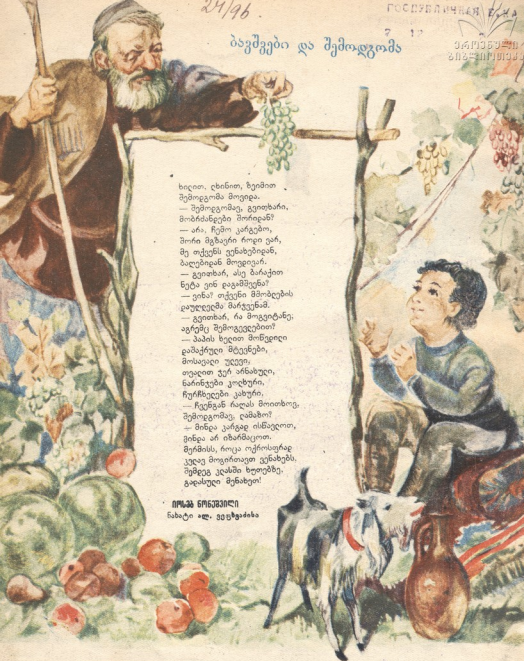 24/96.
ბავშვები და შემოდგომა
ხილით, ლხინით, ზეიმით
შემოდგომა მოვიდა.
— შემოდგომავ, გვითხარი,
მობრძანდები შორიდან?
— არა, ჩემო კარგებო,
შორი მგზავრი როდი ვარ,
მე თქვენს ვენახებიდან,
ბაღებიდან მოვდივარ.
— გვითხარ, ასე ბარაქით
ნეტა ვინ დაგამშვენა?
— ვინა? თქვენი მშობლების
დაუღლელმა მარჯვენამ.
— გვითხარ, რა მოგვიტანე,
აგრემც შემოგევლებით?
— პაპის ხელით მოწეული
დაშაქრული მტევნები,
მოსავალი ულევი,
თვალით ჯერ არნახული,
ნარინჯები კოლხური,
ჩურჩხელები კახური,
— ჩვენგან რაღას მოითხოვ,
შემოდგომავ, ლამაზო?
— მინდა კარგად ისწავლოთ,
მინდა არ იზარმაცოთ.
მერმისს, როცა ოქროსფრად
კვლავ მოგირთავთ ვენახებს,
შემდეგ კლასში ხუთებზე,
გადასული მენახეთ!
იოსებ ნონეშვილი
ნახატი ალ. ვეცხვაძისა
ეროვნული
ბიბლიოთეკა